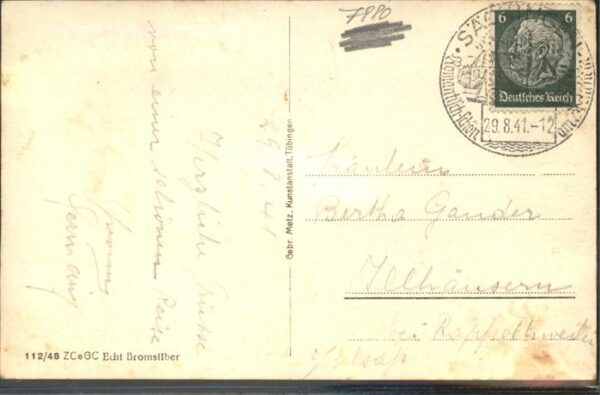 7880
SÄCKINGEN
6 6
Deutsches Reich
29.8.41.-12
29. 8. 41
Herzliche Grüsse
von einer schönen Reise
Gebr. Metz, Kunstanstalt, Tübingen
Fräulein
Bertha Gander
Illhäusern
bei Rappoltsweiler
Elsass
112/48 ZCeGC Echt Bromsilber